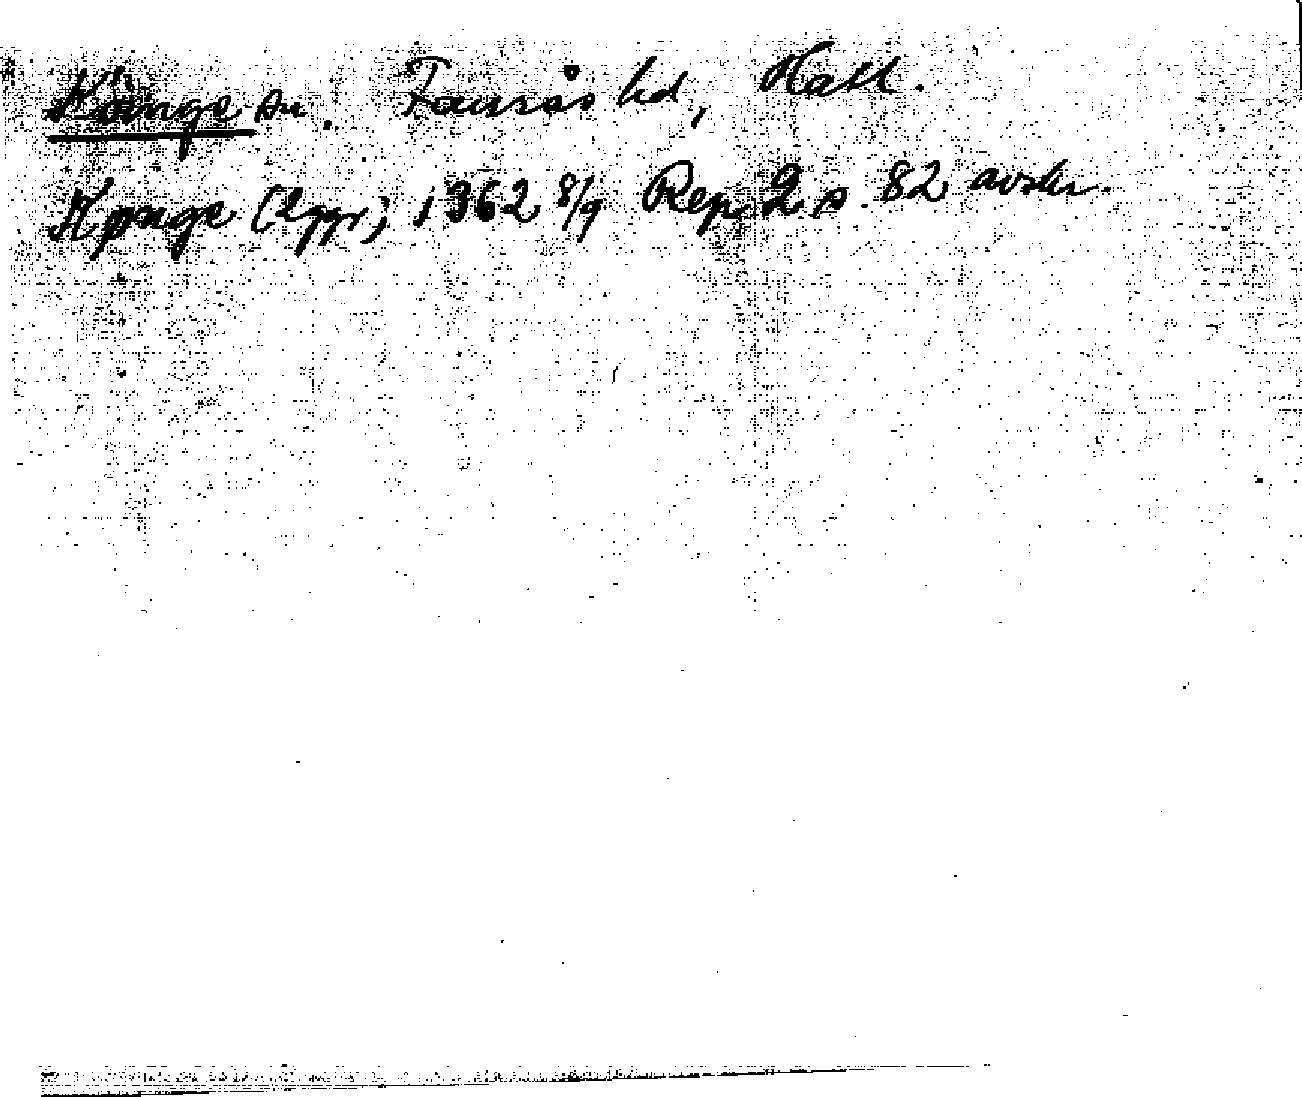 Känge sn. Faurås hd, Hall.
Kønge (2 ggr) 1362 8/9 Rep. 2 s. 82 avskr.